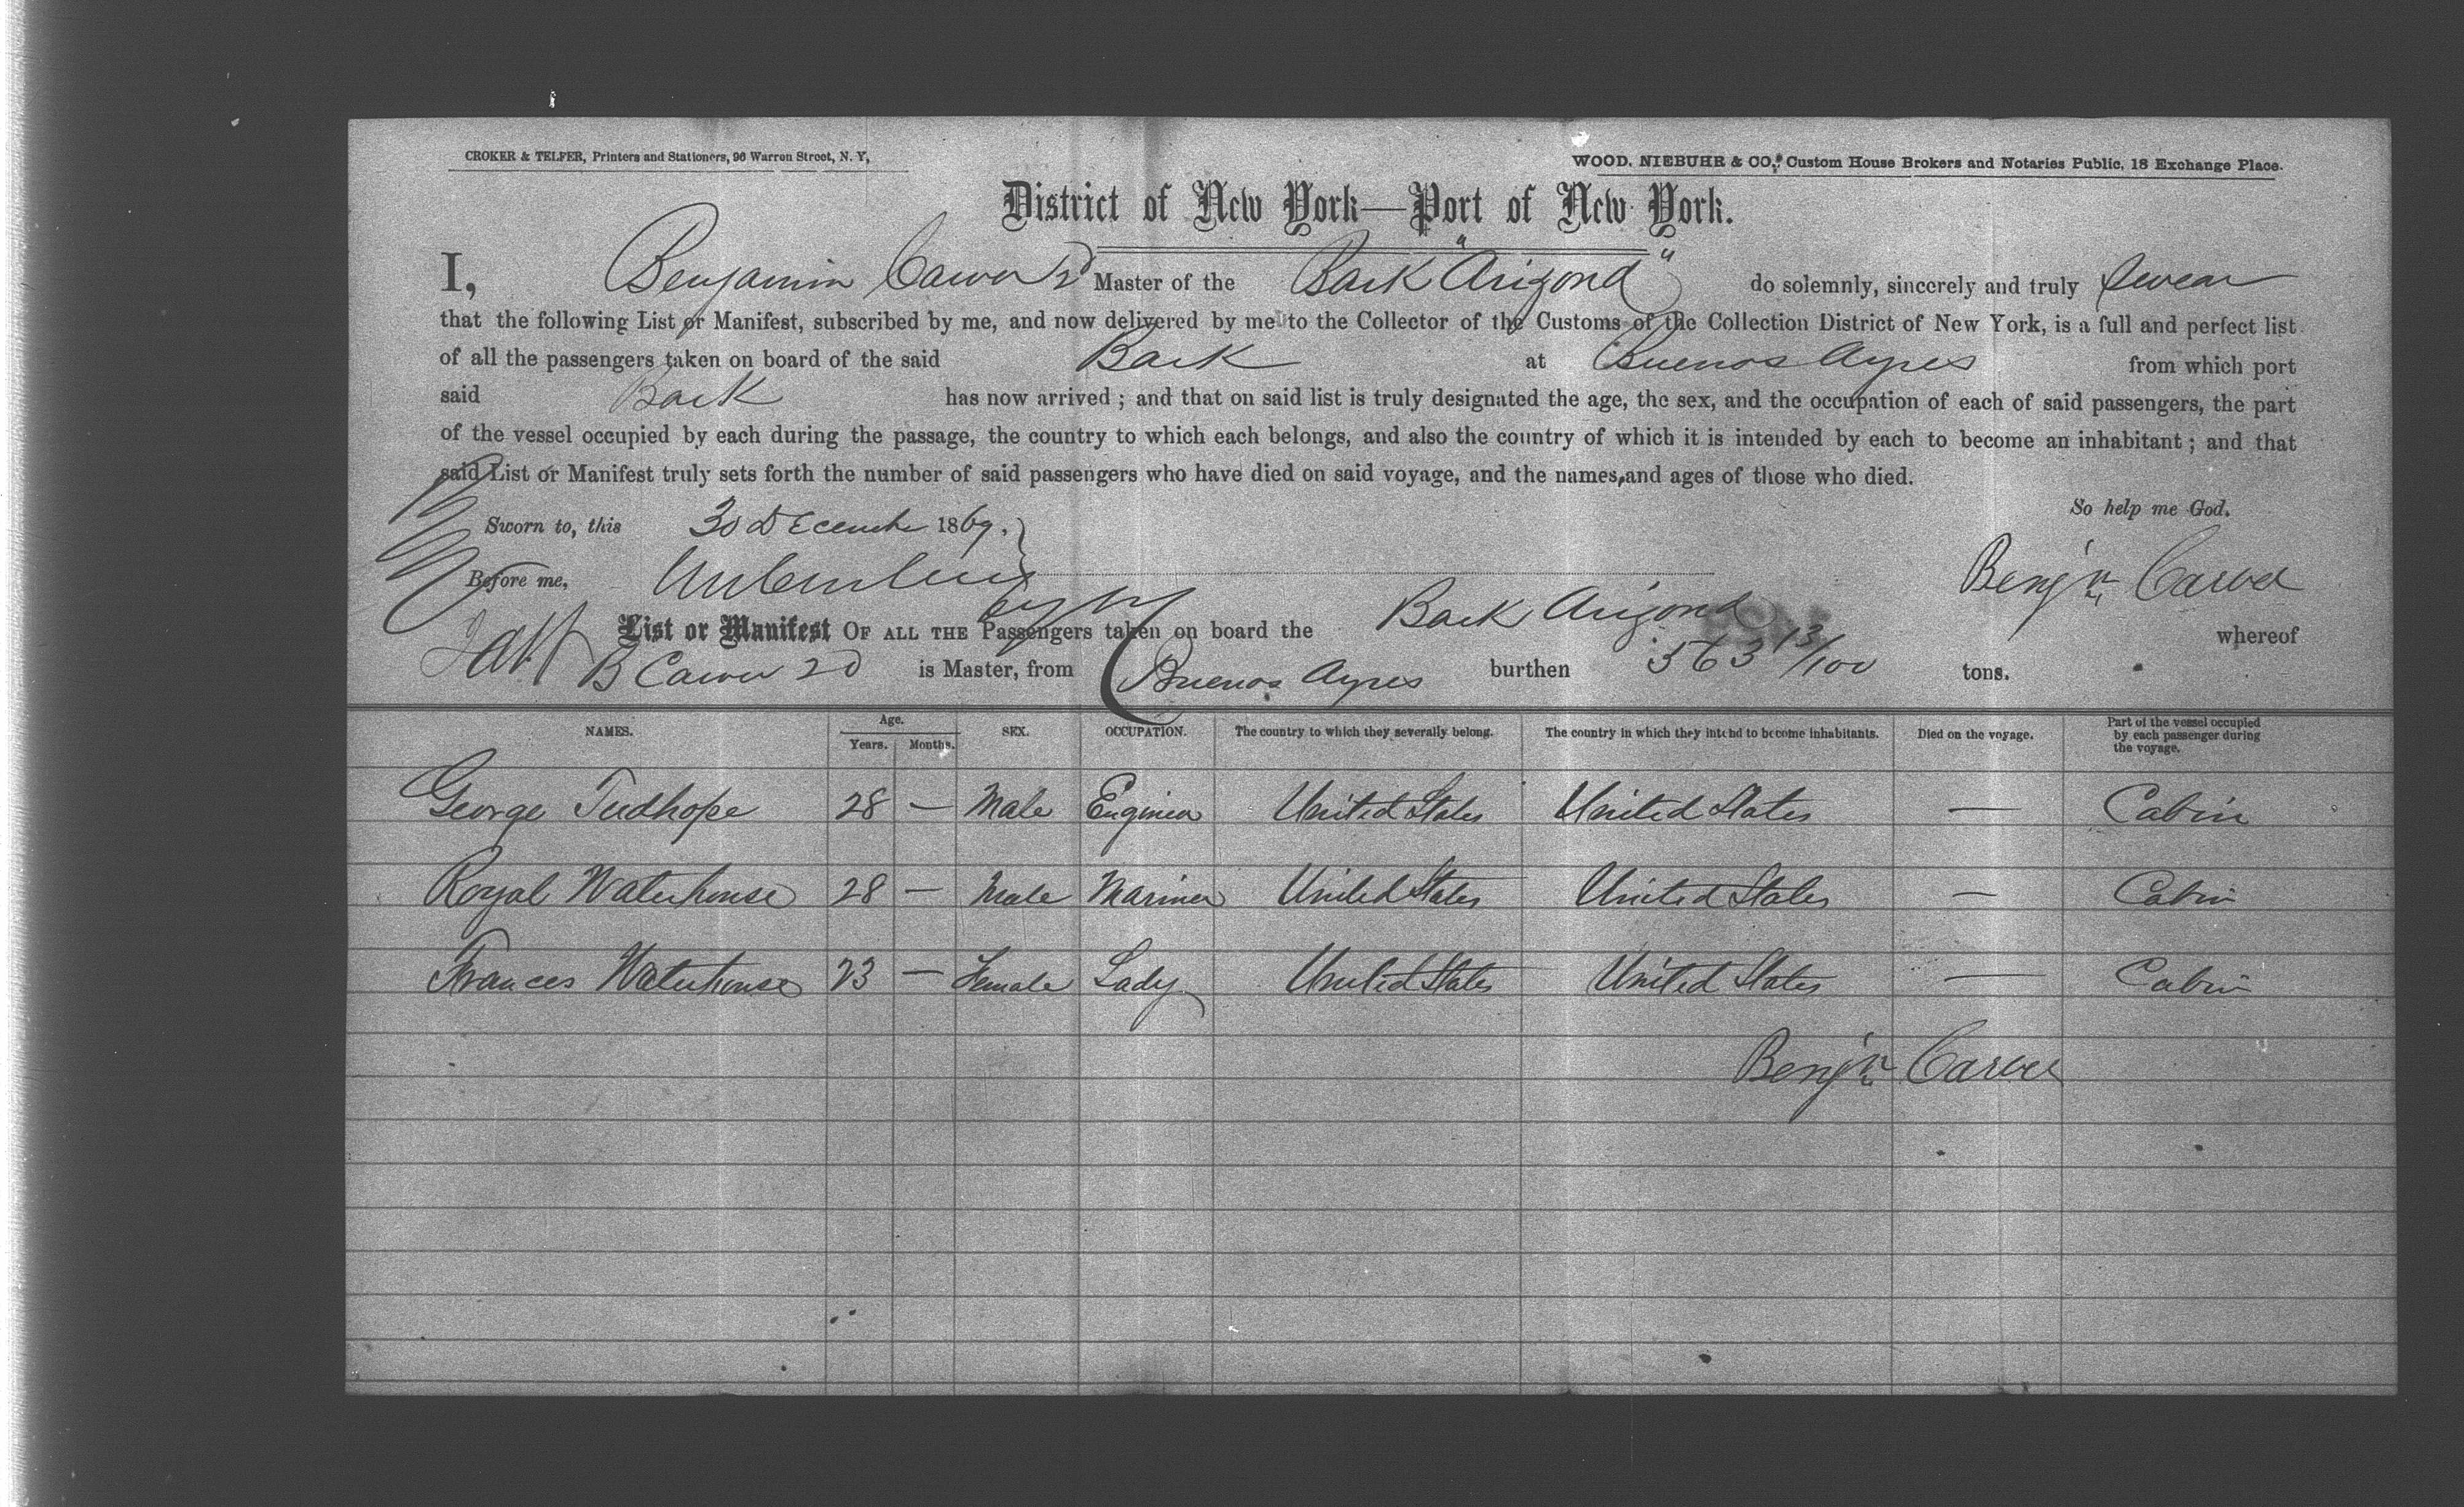 CROKER & TELFER, Printers and Stationers, 96 Warren Street, N. Y,
WOOD, NIEBUHR & CO., Custom House Brokers and Notaries Public, 18 Exchange Place.
District of New York—Port of New York.
I, Benjamin Carver 2d Master of the Bark "Arizona" do solemnly, sincerely and truly swear
that the following List or Manifest, subscribed by me, and now delivered by me to the Collector of the Customs of the Collection District of New York, is a full and perfect list
of all the passengers taken on board of the said Bark at Buenos Ayres from which port
said Bark has now arrived ; and that on said list is truly designated the age, the sex, and the occupation of each of said passengers, the part
of the vessel occupied by each during the passage, the country to which each belongs, and also the country of which it is intended by each to become an inhabitant ; and that
said List or Manifest truly sets forth the number of said passengers who have died on said voyage, and the names, and ages of those who died.
So help me God.
Sworn to, this 30 December 1869.
Before me, Benjn Carver
List or Manifest OF ALL THE Passengers taken on board the Bark Arizona whereof
B Carver 2d is Master, from Buenos Ayres burthen 563 13/100 tons.
NAMES. Age. Years. Months. SEX. OCCUPATION. The country to which they severally belong. The country in which they intend to become inhabitants. Died on the voyage. Part of the vessel occupied by each passenger during the voyage.
George Tudhope 28 — Male Engineer United States United States — Cabin
Royal Waterhouse 28 — Male Mariner United States United States — Cabin
Frances Waterhouse 23 — Female Lady United States United States — Cabin
Benjn Carver